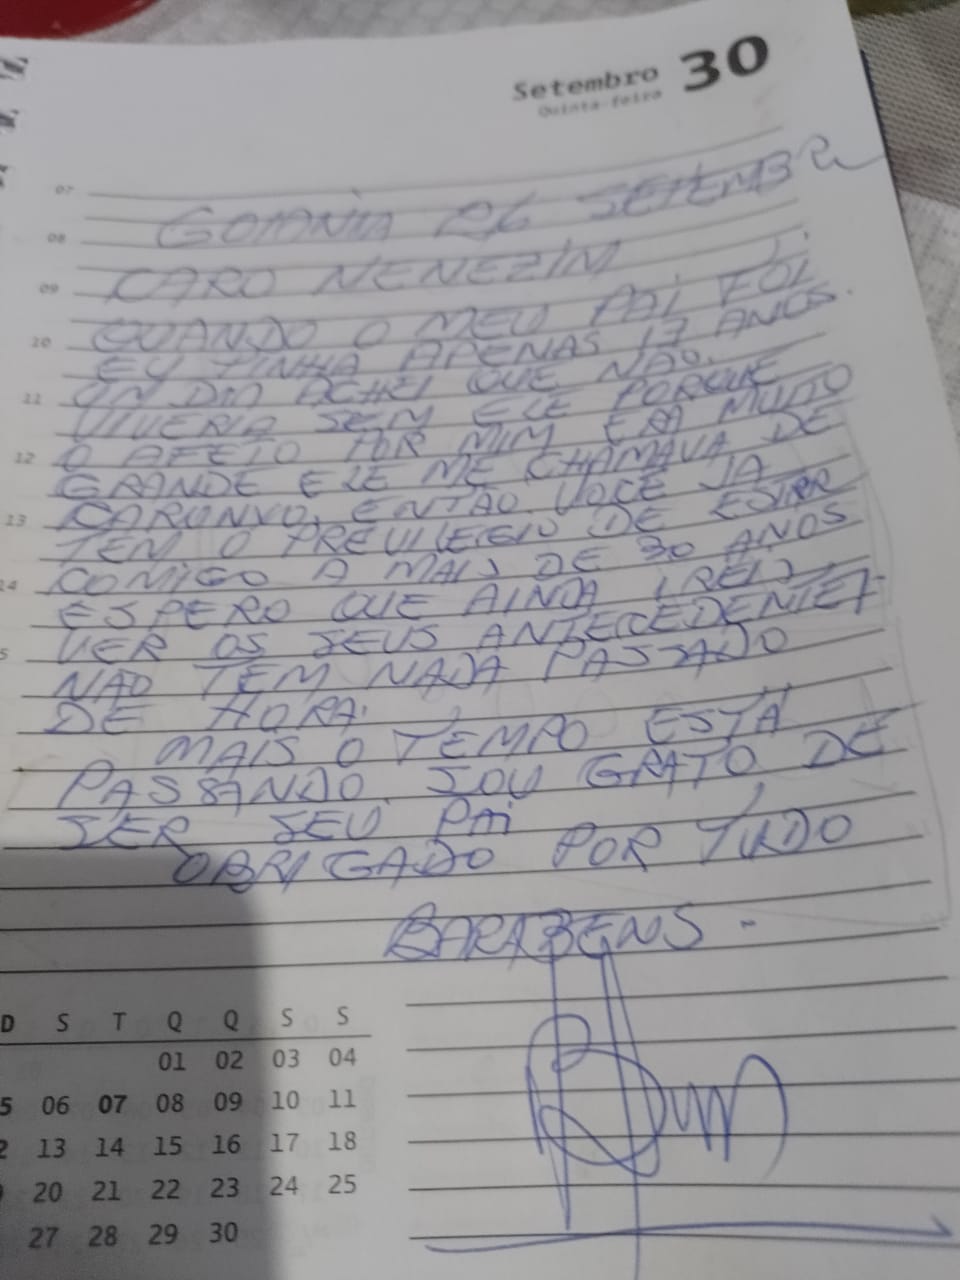 Setembro 30
Quinta-feira
07
GOIANIA 26 SETEMB
08
CARO NENEZIM
09
QUANDO O MEU PAI FOI
10
EU TINHA APENAS 17 ANOS.
UN DIA ACHEI QUE NÃO.
11
VIVERIA SEM ELE PORQUE
O AFETO POR MIM ERA MUITO
12
GRANDE ELE ME CHAMAVA DE
ENTÃO. VOCE JA
13
TEM O PREVILEGIO DE ESTAR
COMIGO A MAIS DE 30 ANOS
14
ESPERO QUE AINDA IREI
VER OS SEUS
NÃO TEM NADA PASSADO
DE HORA.
MAIS O TEMPO ESTÁ
PASSANDO. SOU GRATO DE
SER SEU PAI
OBRIGADO POR TUDO
BARABENS -
D S T Q Q S S
01 02 03 04
5 06 07 08 09 10 11
2 13 14 15 16 17 18
20 21 22 23 24 25
27 28 29 30